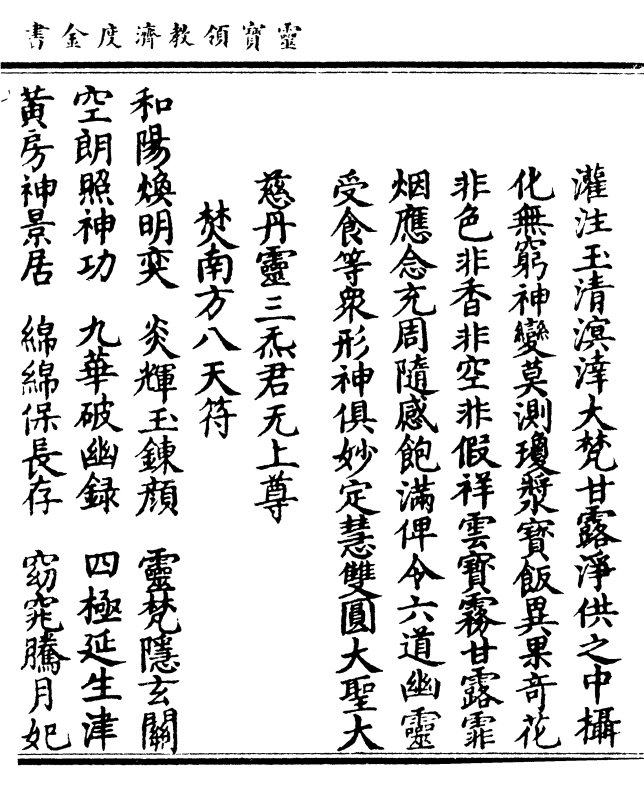 靈寶領教濟度金書
灌注玉清溟涬大梵甘露淨供之中攝
化無窮神變莫測瓊漿寳飯異果竒花
非色非香非空非假祥雲寳霧甘露霏
烟應念充周隨感飽滿俾令六道幽靈
受食等衆形神俱妙定慧雙圓大聖大
慈丹靈三炁君无上尊
焚南方八天符
和陽煥明奕 炎輝玉鍊顔 靈梵隱玄關
空朗照神功 九華破幽録 四極延生津
黄房神景居 綿綿保長存 窈窕騰月妃